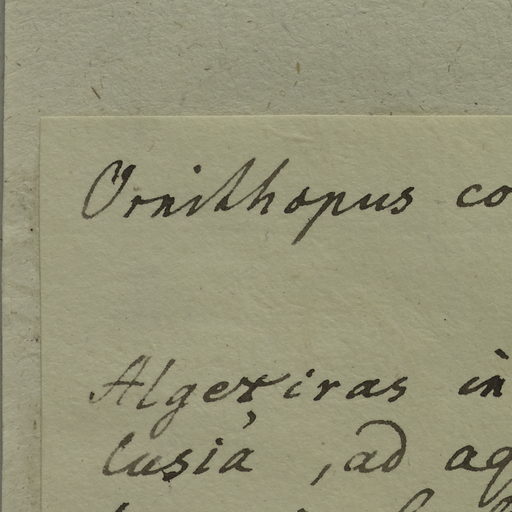 Ornithopus co
Algexiras in
lusiâ, ad aq